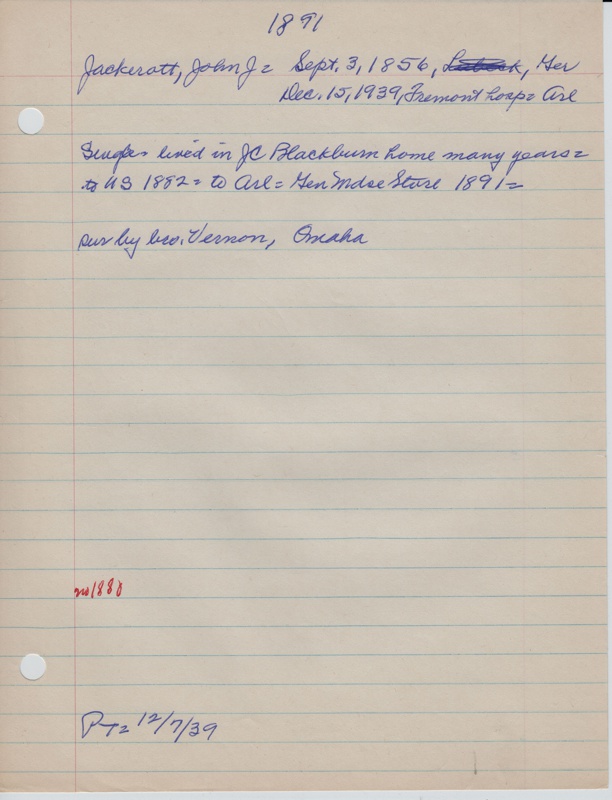 1891
Jackerott, John J = Sept. 3, 1856, Lubeck, Ger
Dec. 15, 1939, Fremont hosp = Arl
Single = lived in JC Blackburn home many years =
to US 1882 = to Arl = Gen Mdse Store 1891 =
sur by bro. Vernon, Omaha
no 1880
PT = 12/7/39